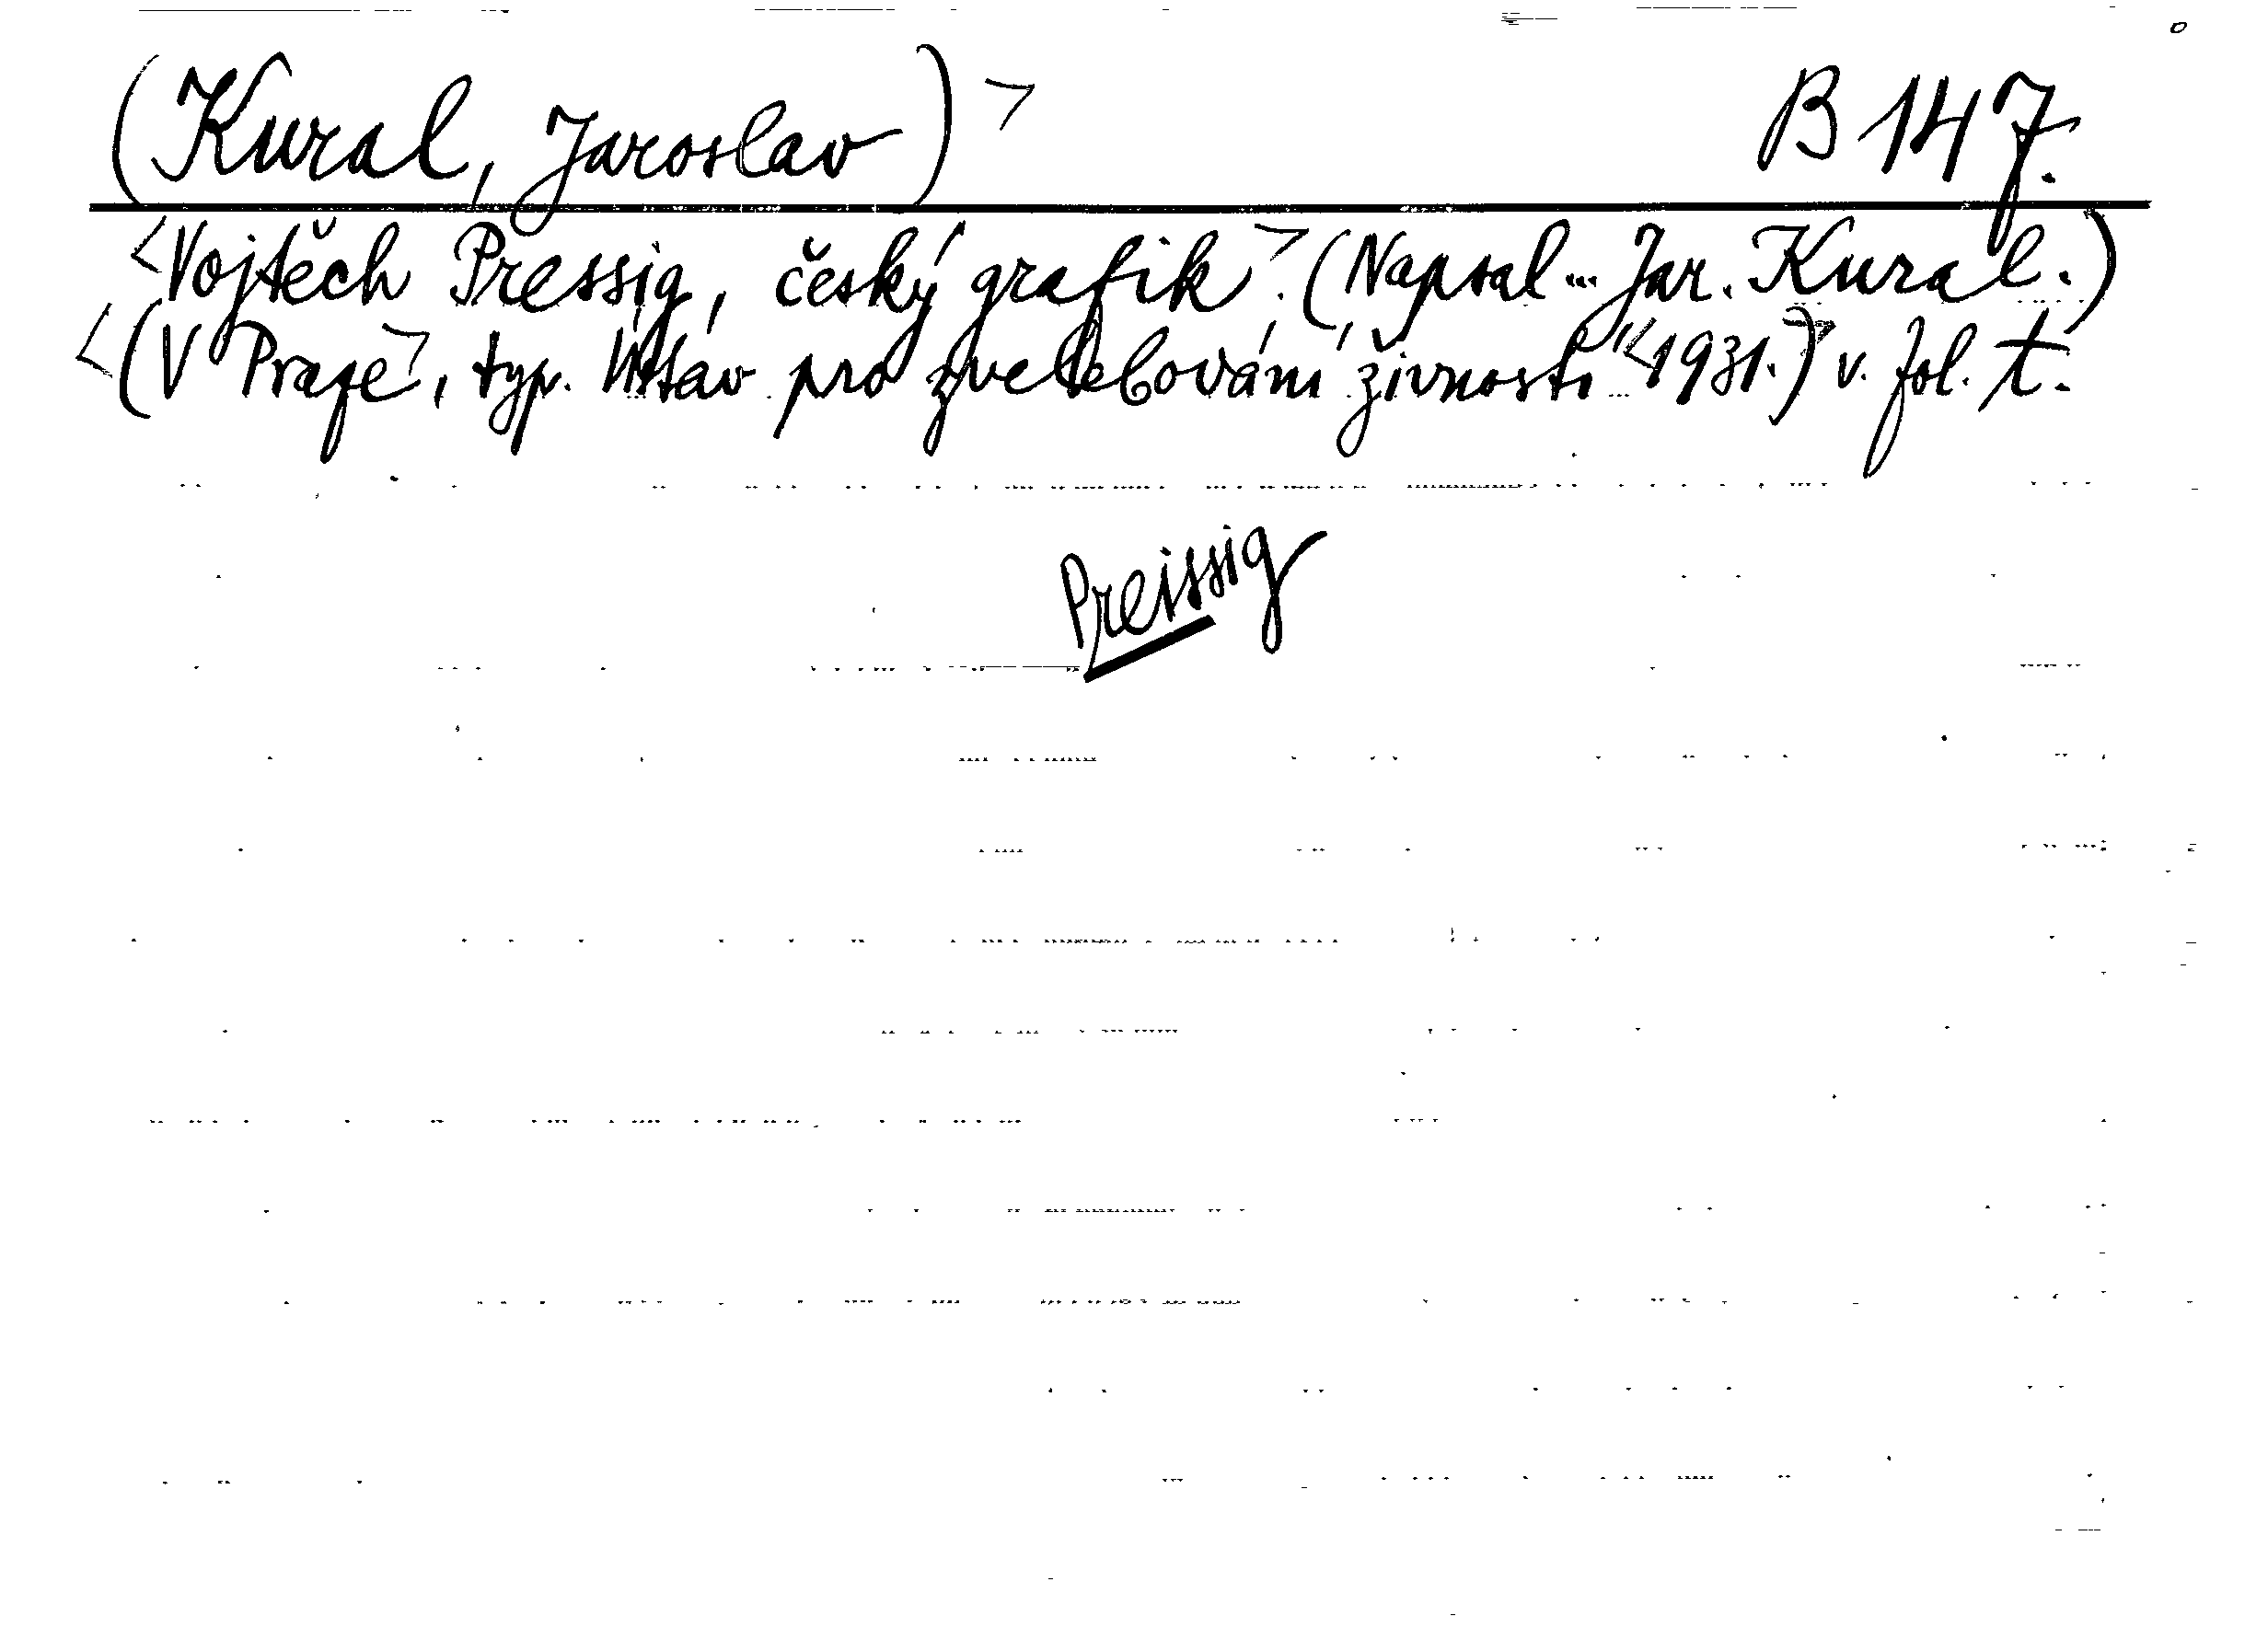 (Kural, Jaroslav)> B 147.
<Vojtěch Pressig, český grafik>. (Napsal... Jar. Kural.)
<(V Praze>, typ. Ústav pro zvelebování živností <1931.)> v. fol. t.
Preissig